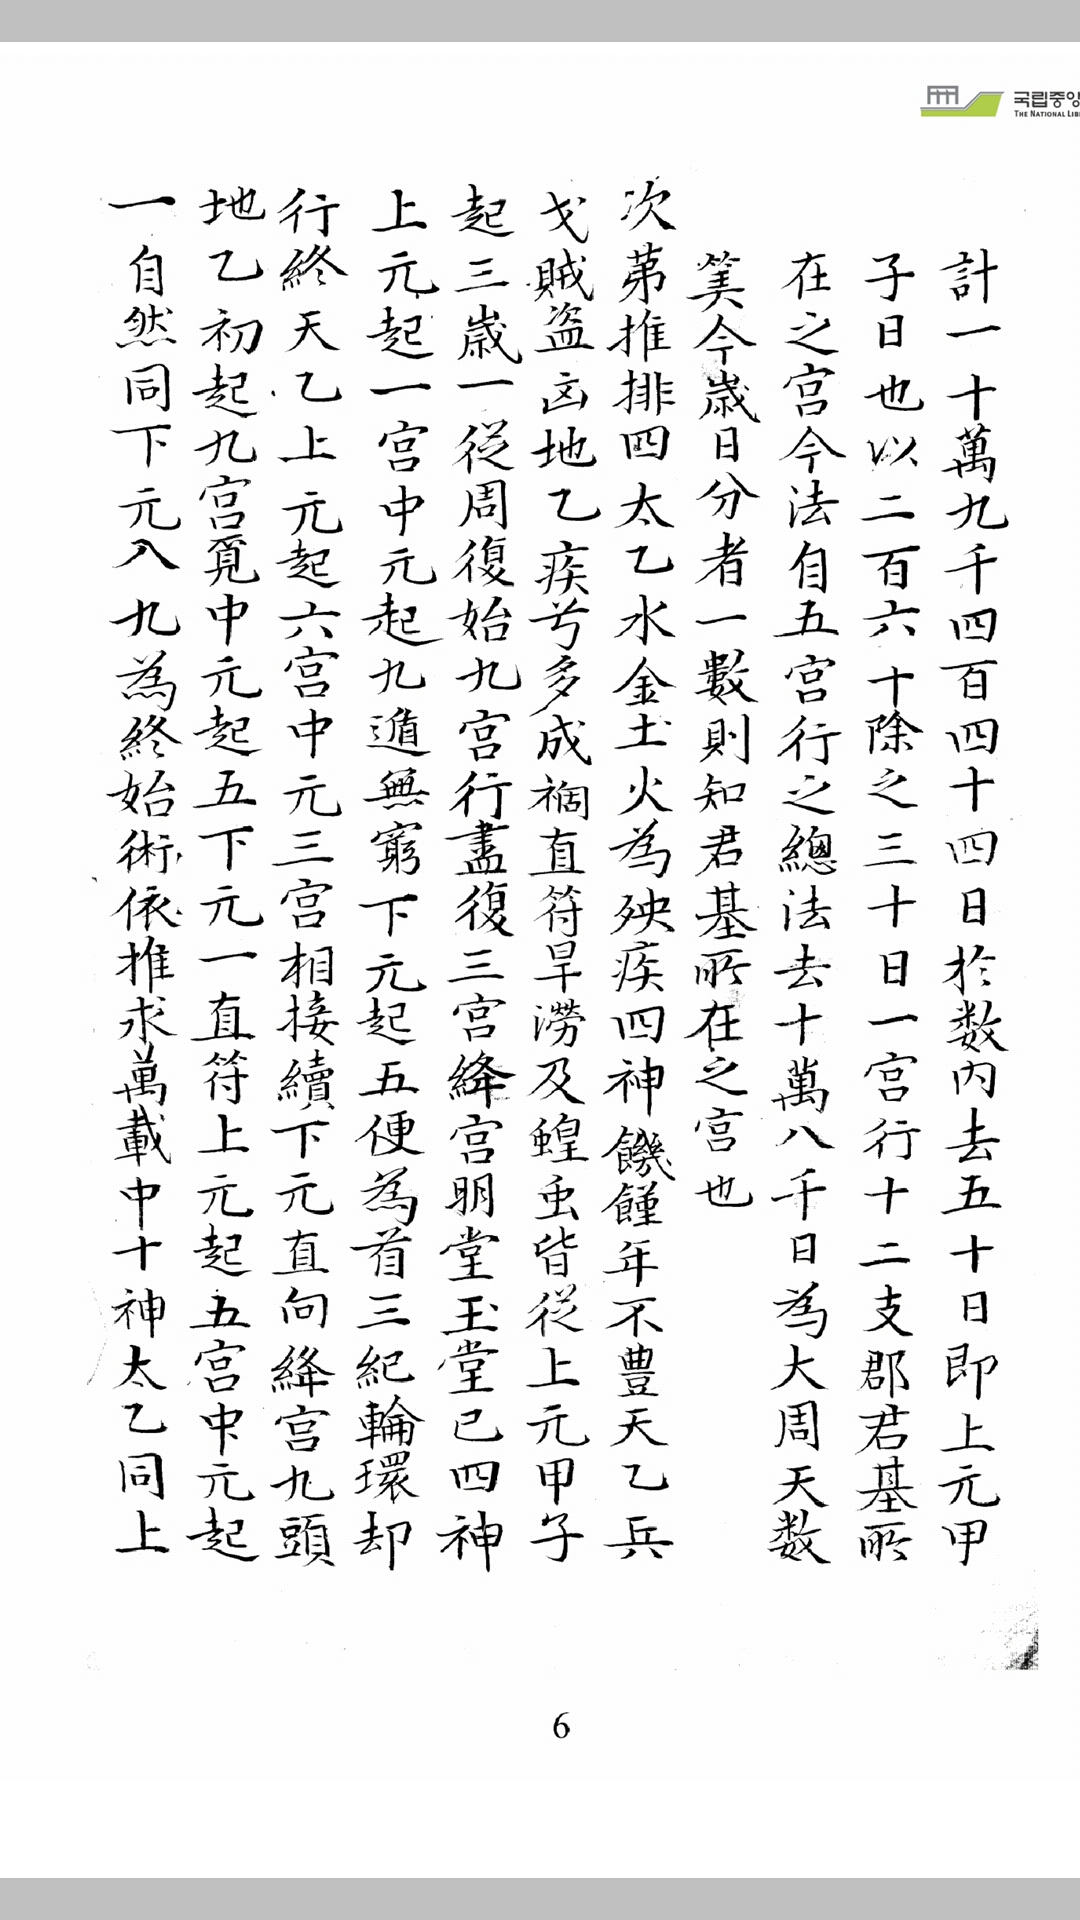 국립중앙
THE NATIONAL LIB
計一十萬九千四百四十四日於数內去五十日即上元甲
子日也以二百六十除之三十日一宫行十二支郡君基所
在之宫今法自五宫行之總法去十萬八千日為大周天数
筭今歲日分者一數則知君基所在之宫也
次第推排四太乙水金土火為殃疾四神饑饉年不豊天乙兵
戈賊盗凶地乙疾兮多成禍直符旱澇及蝗虫皆從上元甲子
起三歲一從周復始九宫行盡復三宫絳宫明堂玉堂已四神
上元起一宫中元起九遁無窮下元起五便為首三紀輪環却
行終天乙上元起六宫中元三宫相接續下元直向絳宫九頭
地乙初起九宫覓中元起五下元一直符上元起五宫中元起
一自然同下元八九為終始術依推求萬載中十神太乙同上
6